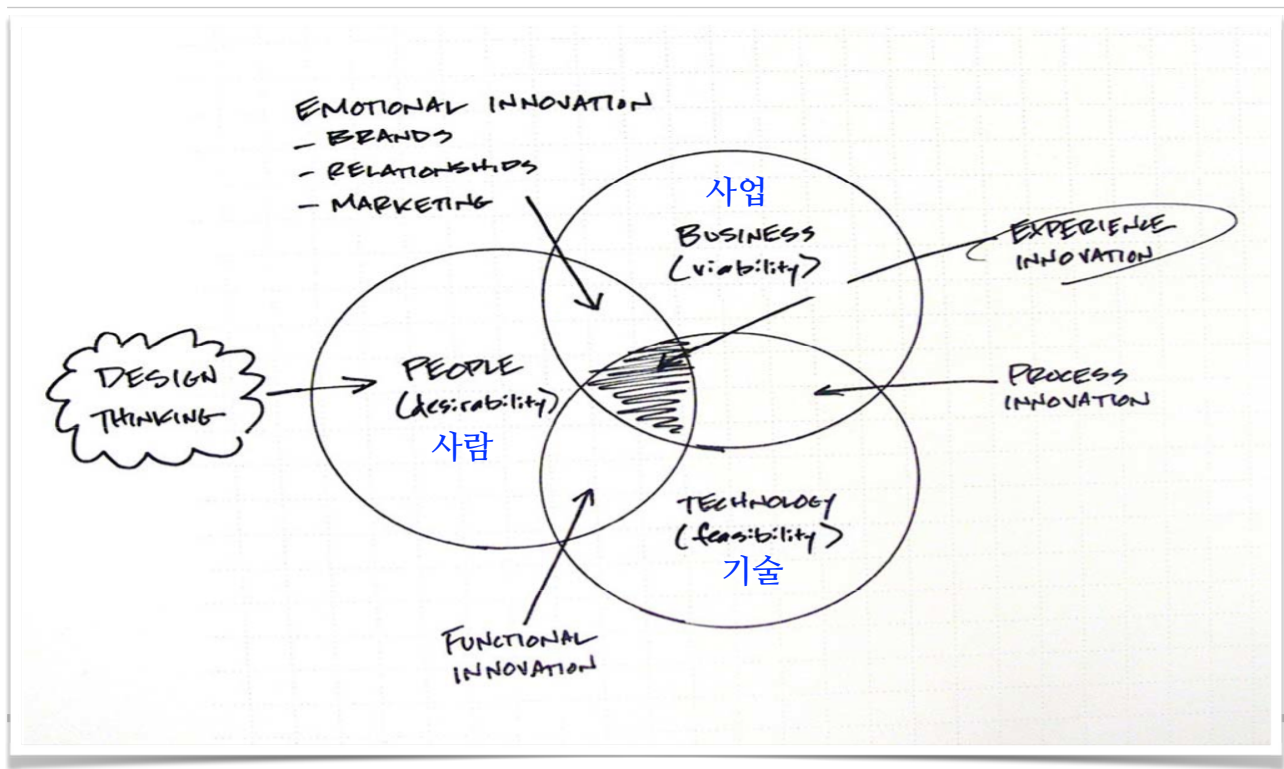 EMOTIONAL INNOVATION
- BRANDS
- RELATIONSHIPS
- MARKETING
사업
BUSINESS
(viability)
EXPERIENCE
INNOVATION
DESIGN
THINKING
PEOPLE
(desirability)
사람
PROCESS
INNOVATION
TECHNOLOGY
(feasibility)
기술
FUNCTIONAL
INNOVATION